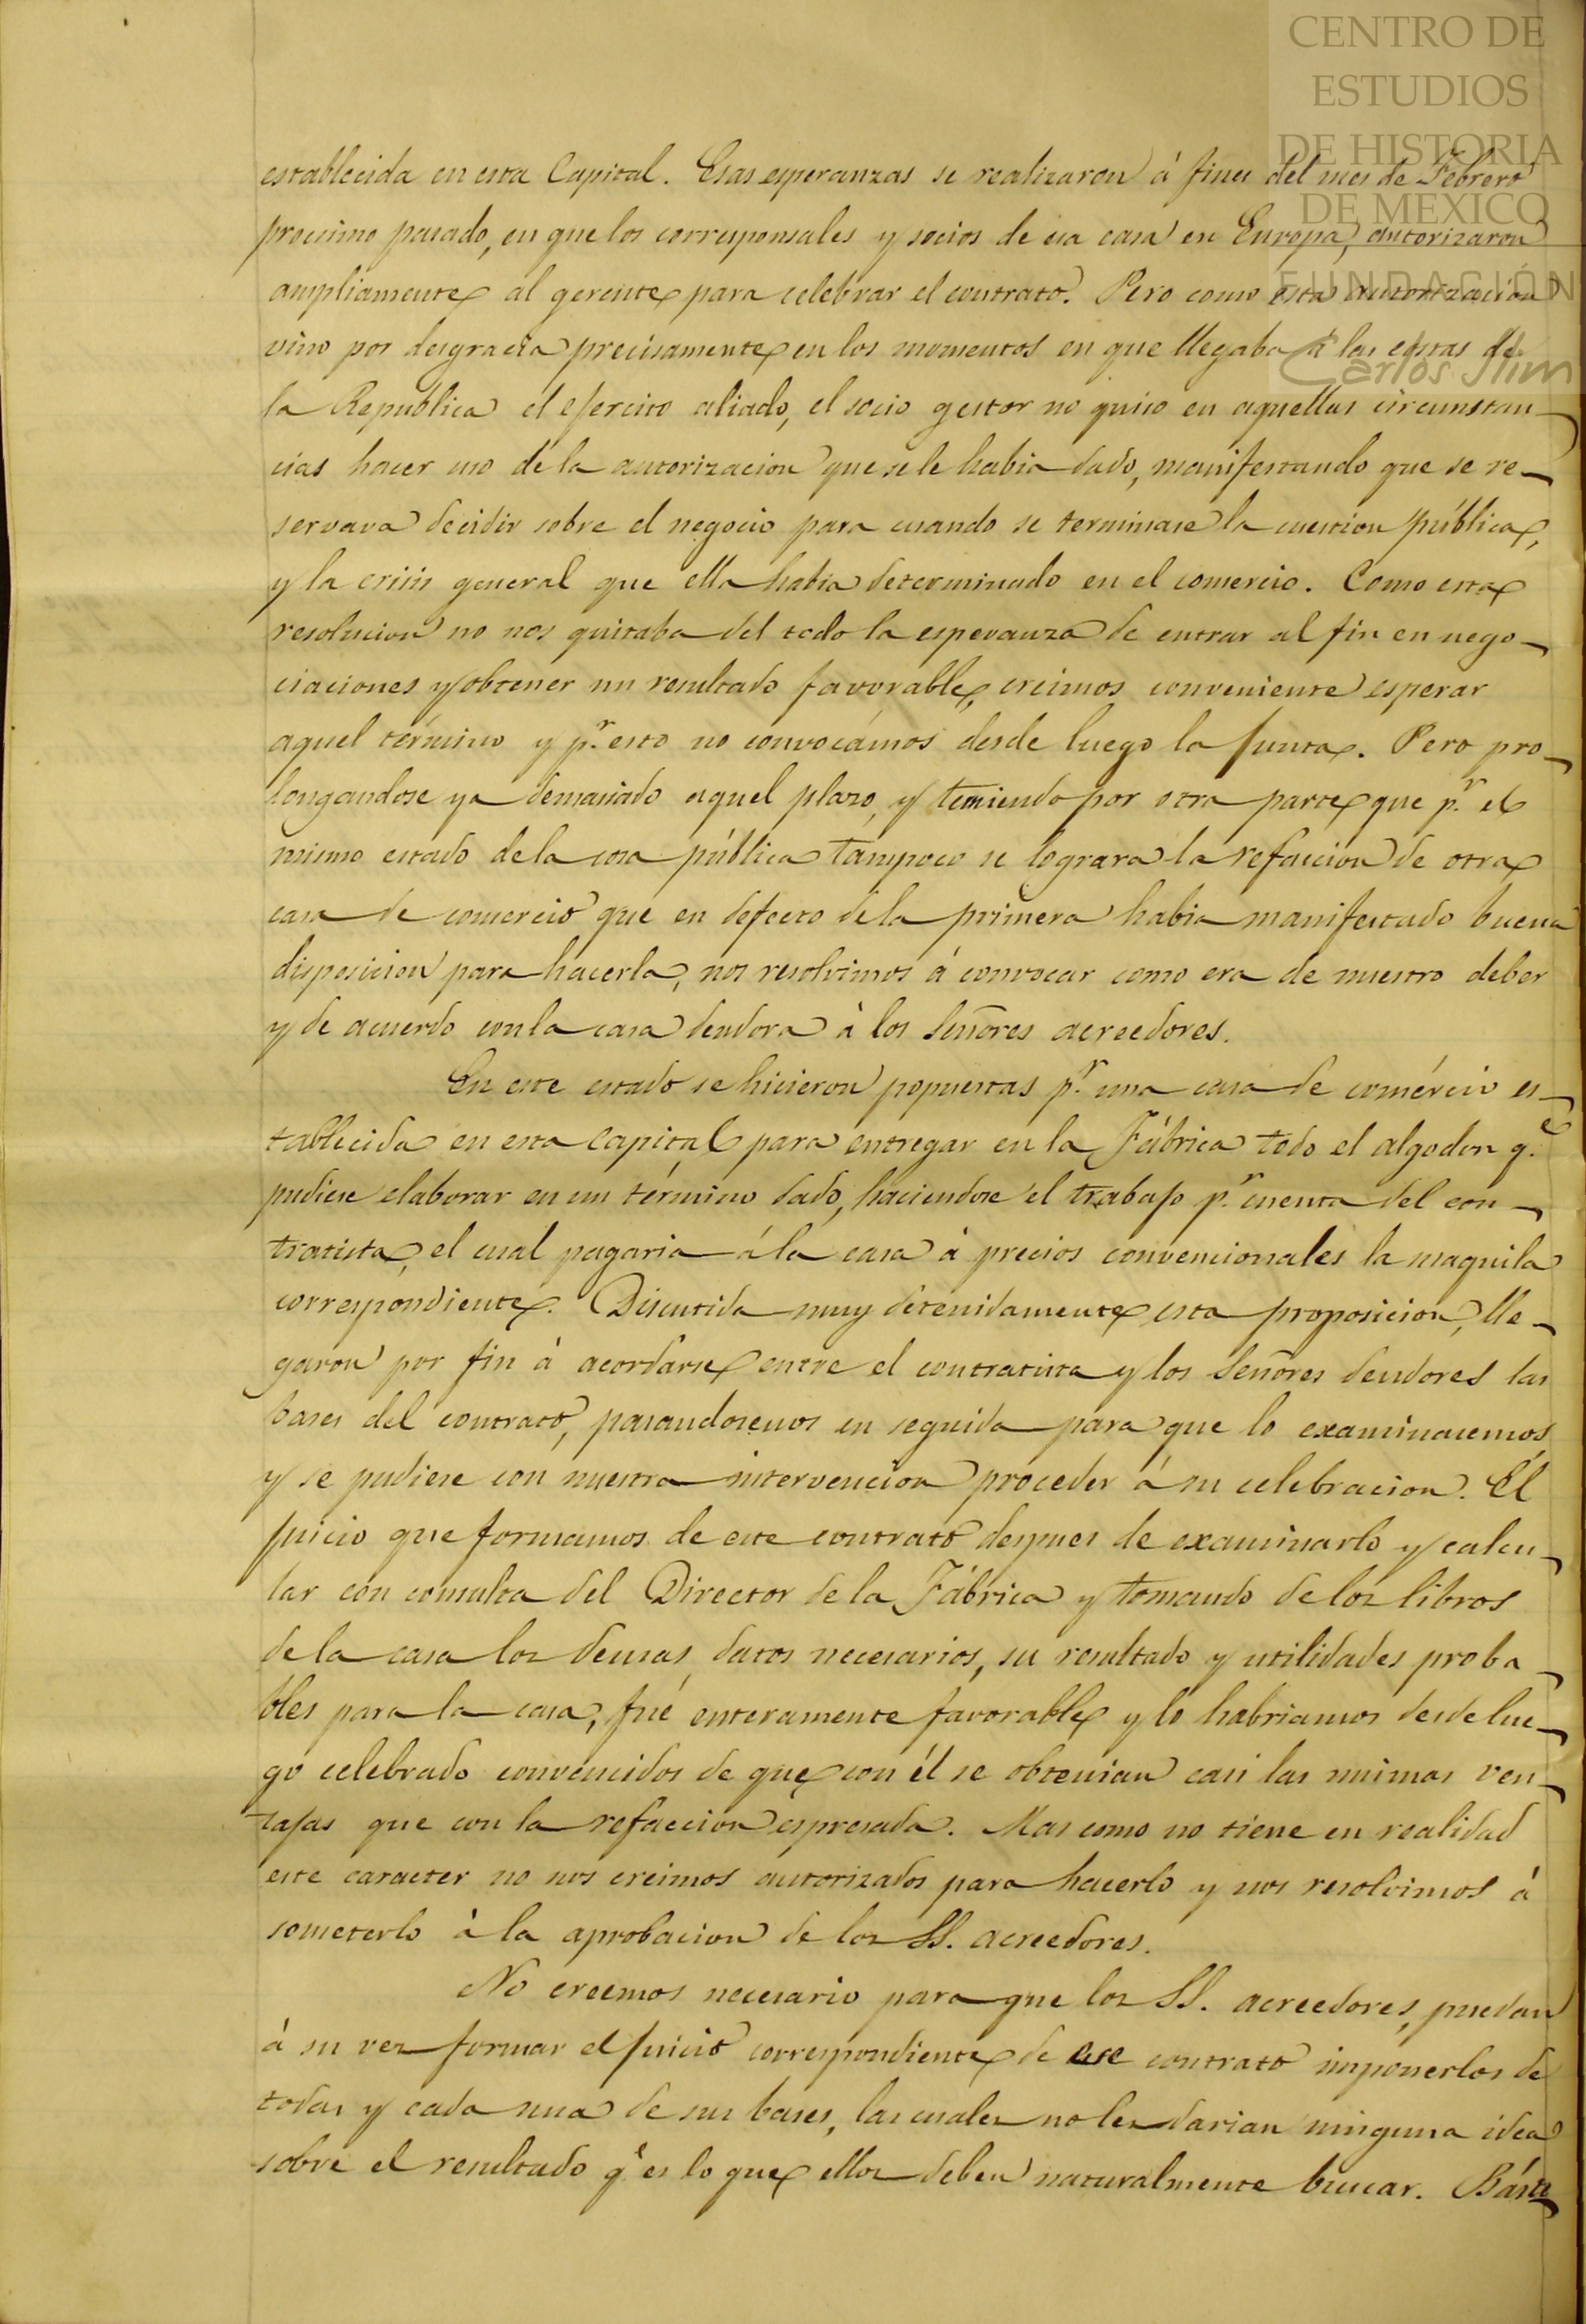 CENTRO DE
ESTUDIOS
DE HISTORIA
DE MEXICO
FUNDACIÓN
Carlos Slim
establecida en esta Capital. Esas esperanzas se realizaron á fines del mes de Febrero
procsimo pasado, en que los corresponsales y socios de esa casa en Europa, autorizaron
ampliamente al gerente para celebrar el contrato. Pero como esta autorizacion
vino por desgracia precisamente en los momentos en que llegaba á las costas de
la Republica el ejercito aliado, el socio gestor no quiso en aquellas circunstan-
cias hacer uso de la autorizacion que se le habia dado, manifestando que se re-
servava decidir sobre el negocio para cuando se terminase la cuestion pública,
y la crisis general que ella habia determinado en el comercio. Como esta
resolucion no nos quitaba del todo la esperanza de entrar al fin en nego-
ciaciones y obtener un resultado favorable, creimos conveniente esperar
aquel término y pr. esto no convocámos desde luego la junta. Pero pro-
longandose ya demasiado aquel plazo, y temiendo por otra parte que pr. el
mismo estado de la cosa pública tampoco se lograra la refaccion de otra
casa de comercio que en defecto de la primera habia manifestado buena
disposicion para hacerla, nos resolvimos á convocar como era de nuestro deber
y de acuerdo con la casa deudora à los Señores acreedores.
En este estado se hicieron propuestas pr. una casa de comércio es-
tablecida en esta Capital para entregar en la Fábrica todo el algodon qe.
pudiese elaborar en un término dado, haciendose el trabajo pr. cuenta del con-
tratista, el cual pagaria á la casa à precios convencionales la maquila
correspondiente. Discutida muy detenidamente esta proposicion, lle-
garon por fin à acordarse entre el contratista y los Señores deudores las
bases del contrato, pasandosenos en seguida para que lo examinasemos,
y se pudiese con nuestra intervencion proceder á su celebracion. El
juicio que formamos de este contrato despues de examinarlo y calcu-
lar con consulta del Director de la Fábrica y tomando de los libros
de la casa los demas datos necesarios, su resultado y utilidades proba-
bles para la casa, fué enteramente favorable y lo habriamos desde lue-
go celebrado convencidos de que con él se obtenian casi las mismas ven-
tajas que con la refaccion espresada. Mas como no tiene en realidad
este caracter no nos creimos autorizados para hacerlo y nos resolvimos à
someterlo à la aprobacion de los SS. acreedores.
No creemos necesario para que los SS. acreedores, puedan
à su vez formar el juicio correspondiente de ese contrato imponerlos de
todas y cada una de sus bases, las cuales no les darian ninguna idea
sobre el resultado qe es lo que ellos deben naturalmente buscar. Báste